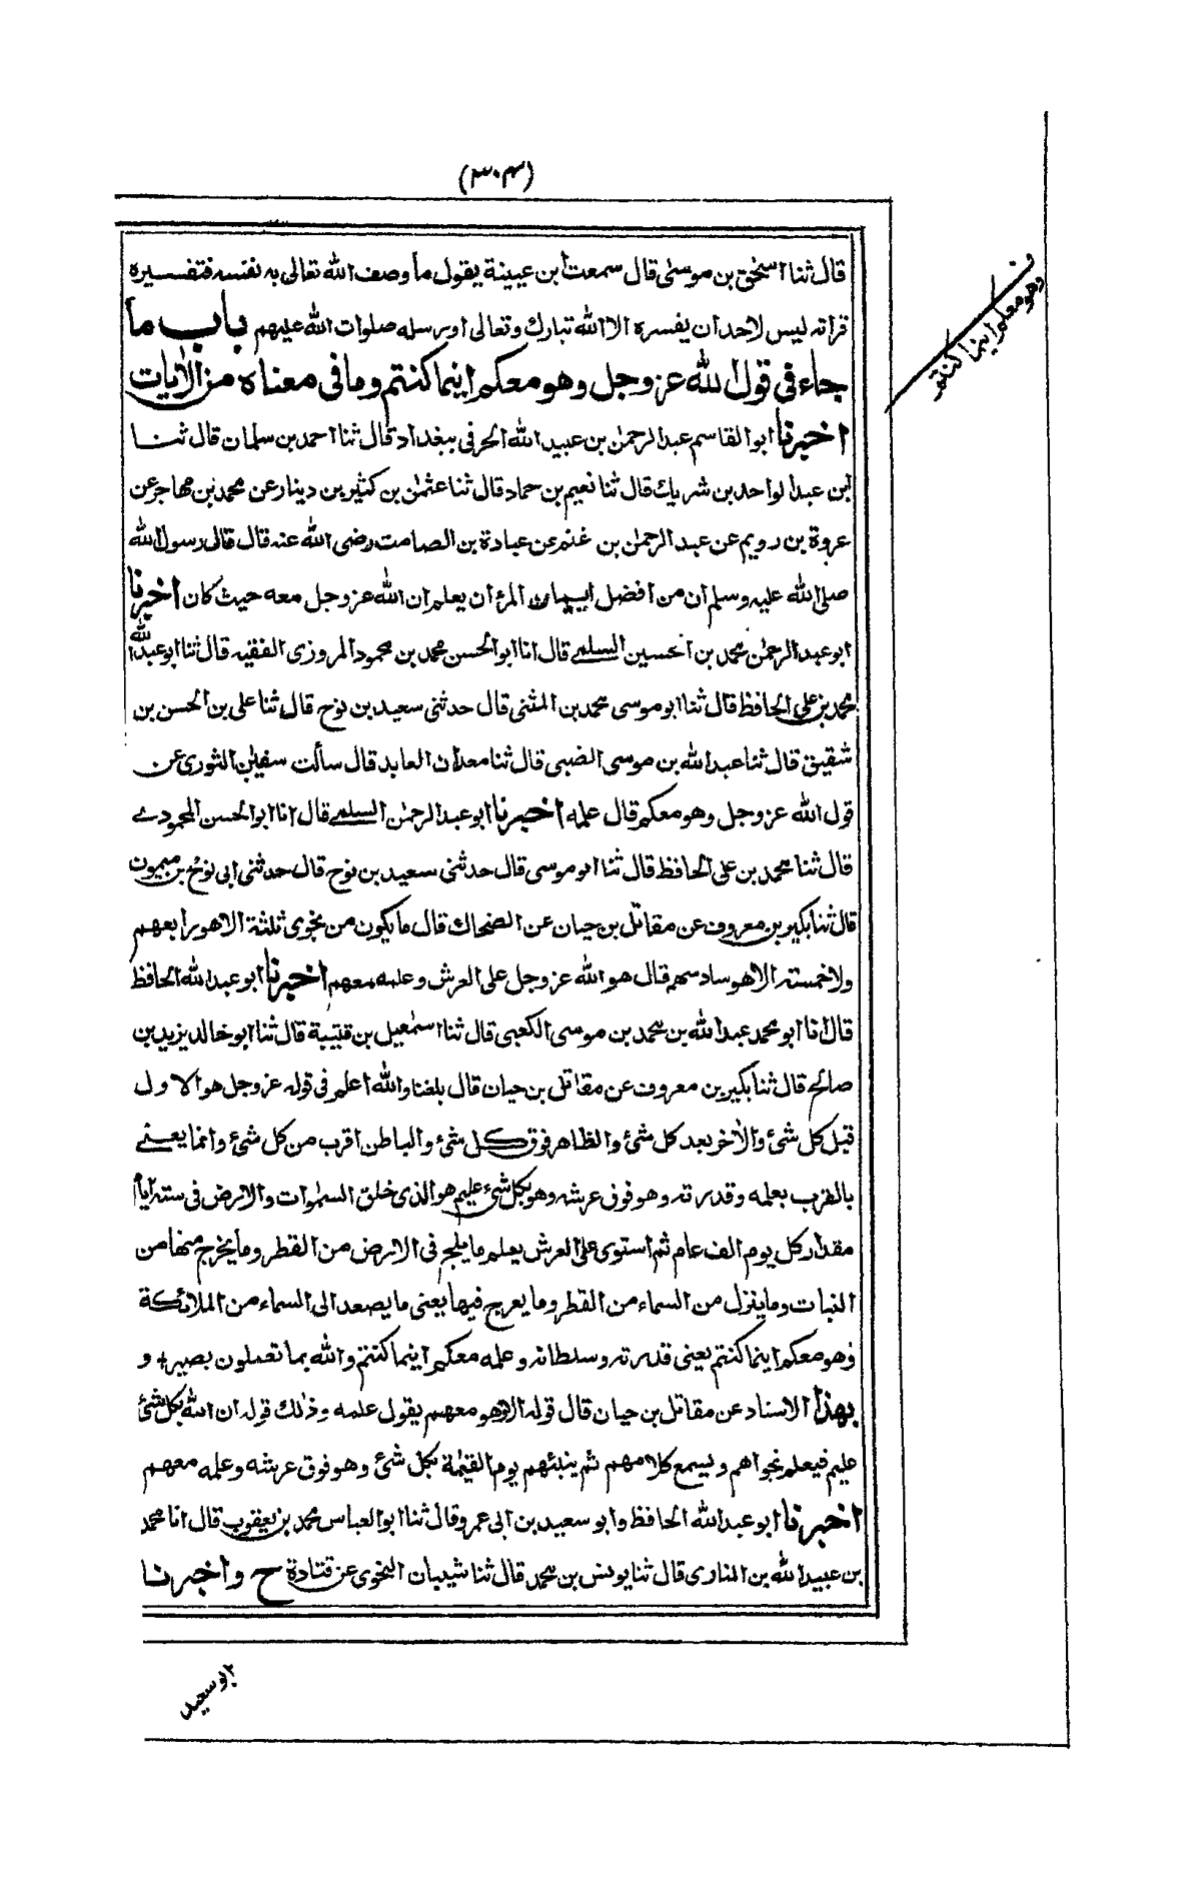 (٣٠٤)
قال ثنا اسحٰق بن موسى قال سمعت ابن عيينة يقول ما وصف الله تعالى به نفسه فتفسيره
قراته ليس لاحد ان يفسره الا الله تبارك وتعالى او رسله صلوات الله عليهم باب ما
جاء في قول الله عز وجل وهو معكم اينما كنتم وما في معناه من الاٰيات
وهو معكم اينما كنتم
اخبرنا ابو القاسم عبد الرحمٰن بن عبيد الله الحرفي ببغداد قال ثنا احمد بن سلمان قال ثنا
ابن عبد الواحد بن شريك قال ثنا نعيم بن حماد قال ثنا عثمٰن بن كثير بن دينار عن محمد بن مهاجر عن
عروة بن رويم عن عبد الرحمٰن بن غنم عن عبادة بن الصامت رضى الله عنه قال قال رسول الله
صلى الله عليه وسلم ان من افضل ايمان المرء ان يعلم ان الله عز وجل معه حيث كان اخبرنا
ابو عبد الرحمٰن محمد بن الحسين السلمى قال انا ابو الحسن محمد بن محمود المروزى الفقيه قال ثنا ابو عبد الله
محمد بن على الحافظ قال ثنا ابو موسى محمد بن المثنى قال حدثنى سعيد بن نوح قال ثنا على بن الحسن بن
شقيق قال ثنا عبد الله بن موسى الضبى قال ثنا معدان العابد قال سألت سفيٰن الثورى عن
قول الله عز وجل وهو معكم قال علمه اخبرنا ابو عبد الرحمٰن السلمى قال انا ابو الحسن المحمودى
قال ثنا محمد بن على الحافظ قال ثنا ابو موسى قال حدثنى سعيد بن نوح قال حدثنى ابى نوح بن ميمون
قال ثنا بكير بن معروف عن مقاتل بن حيان عن الضحاك قال ما يكون من نجوى ثلثة الا هو رابعهم
ولا خمسته الا هو سادسهم قال هو الله عز وجل على العرش وعلمه معهم اخبرنا ابو عبد الله الحافظ
قال انا ابو محمد عبد الله بن محمد بن موسى الكعبى قال ثنا اسمٰعيل بن قتيبة قال ثنا ابو خالد يزيد بن
صالح قال ثنا بكير بن معروف عن مقاتل بن حيان قال بلغنا والله اعلم فى قوله عز وجل هو الاول
قبل كل شئ والاٰخر بعد كل شئ والظاهر فوق كل شئ والباطن اقرب من كل شئ وانما يعنى
بالقرب بعلمه وقدرته وهو فوق عرشه وهو بكل شئ عليم هو الذى خلق السمٰوات والارض فى ستة ايام
مقدار كل يوم الف عام ثم استوى على العرش يعلم ما يلج فى الارض من القطر وما يخرج منها من
النبات وما ينزل من السماء من القطر وما يعرج فيها يعنى ما يصعد الى السماء من الملائكة
وهو معكم اينما كنتم يعنى قدرته وسلطانه وعلمه معكم اينما كنتم والله بما تعملون بصير و
بهذا الاسناد عن مقاتل بن حيان قال قوله الا هو معهم يقول علمه وذٰلك قوله ان الله بكل شئ
عليم فيعلم نجواهم ويسمع كلامهم ثم ينبئهم يوم القيٰمة بكل شئ وهو فوق عرشه وعلمه معهم
اخبرنا ابو عبد الله الحافظ وابو سعيد بن ابى عمرو قال ثنا ابو العباس محمد بن يعقوب قال انا محمد
بن عبيد الله بن المنادى قال ثنا يونس بن محمد قال ثنا شيبان النحوى عن قتادة ح واخبرنا
ابو سعيد